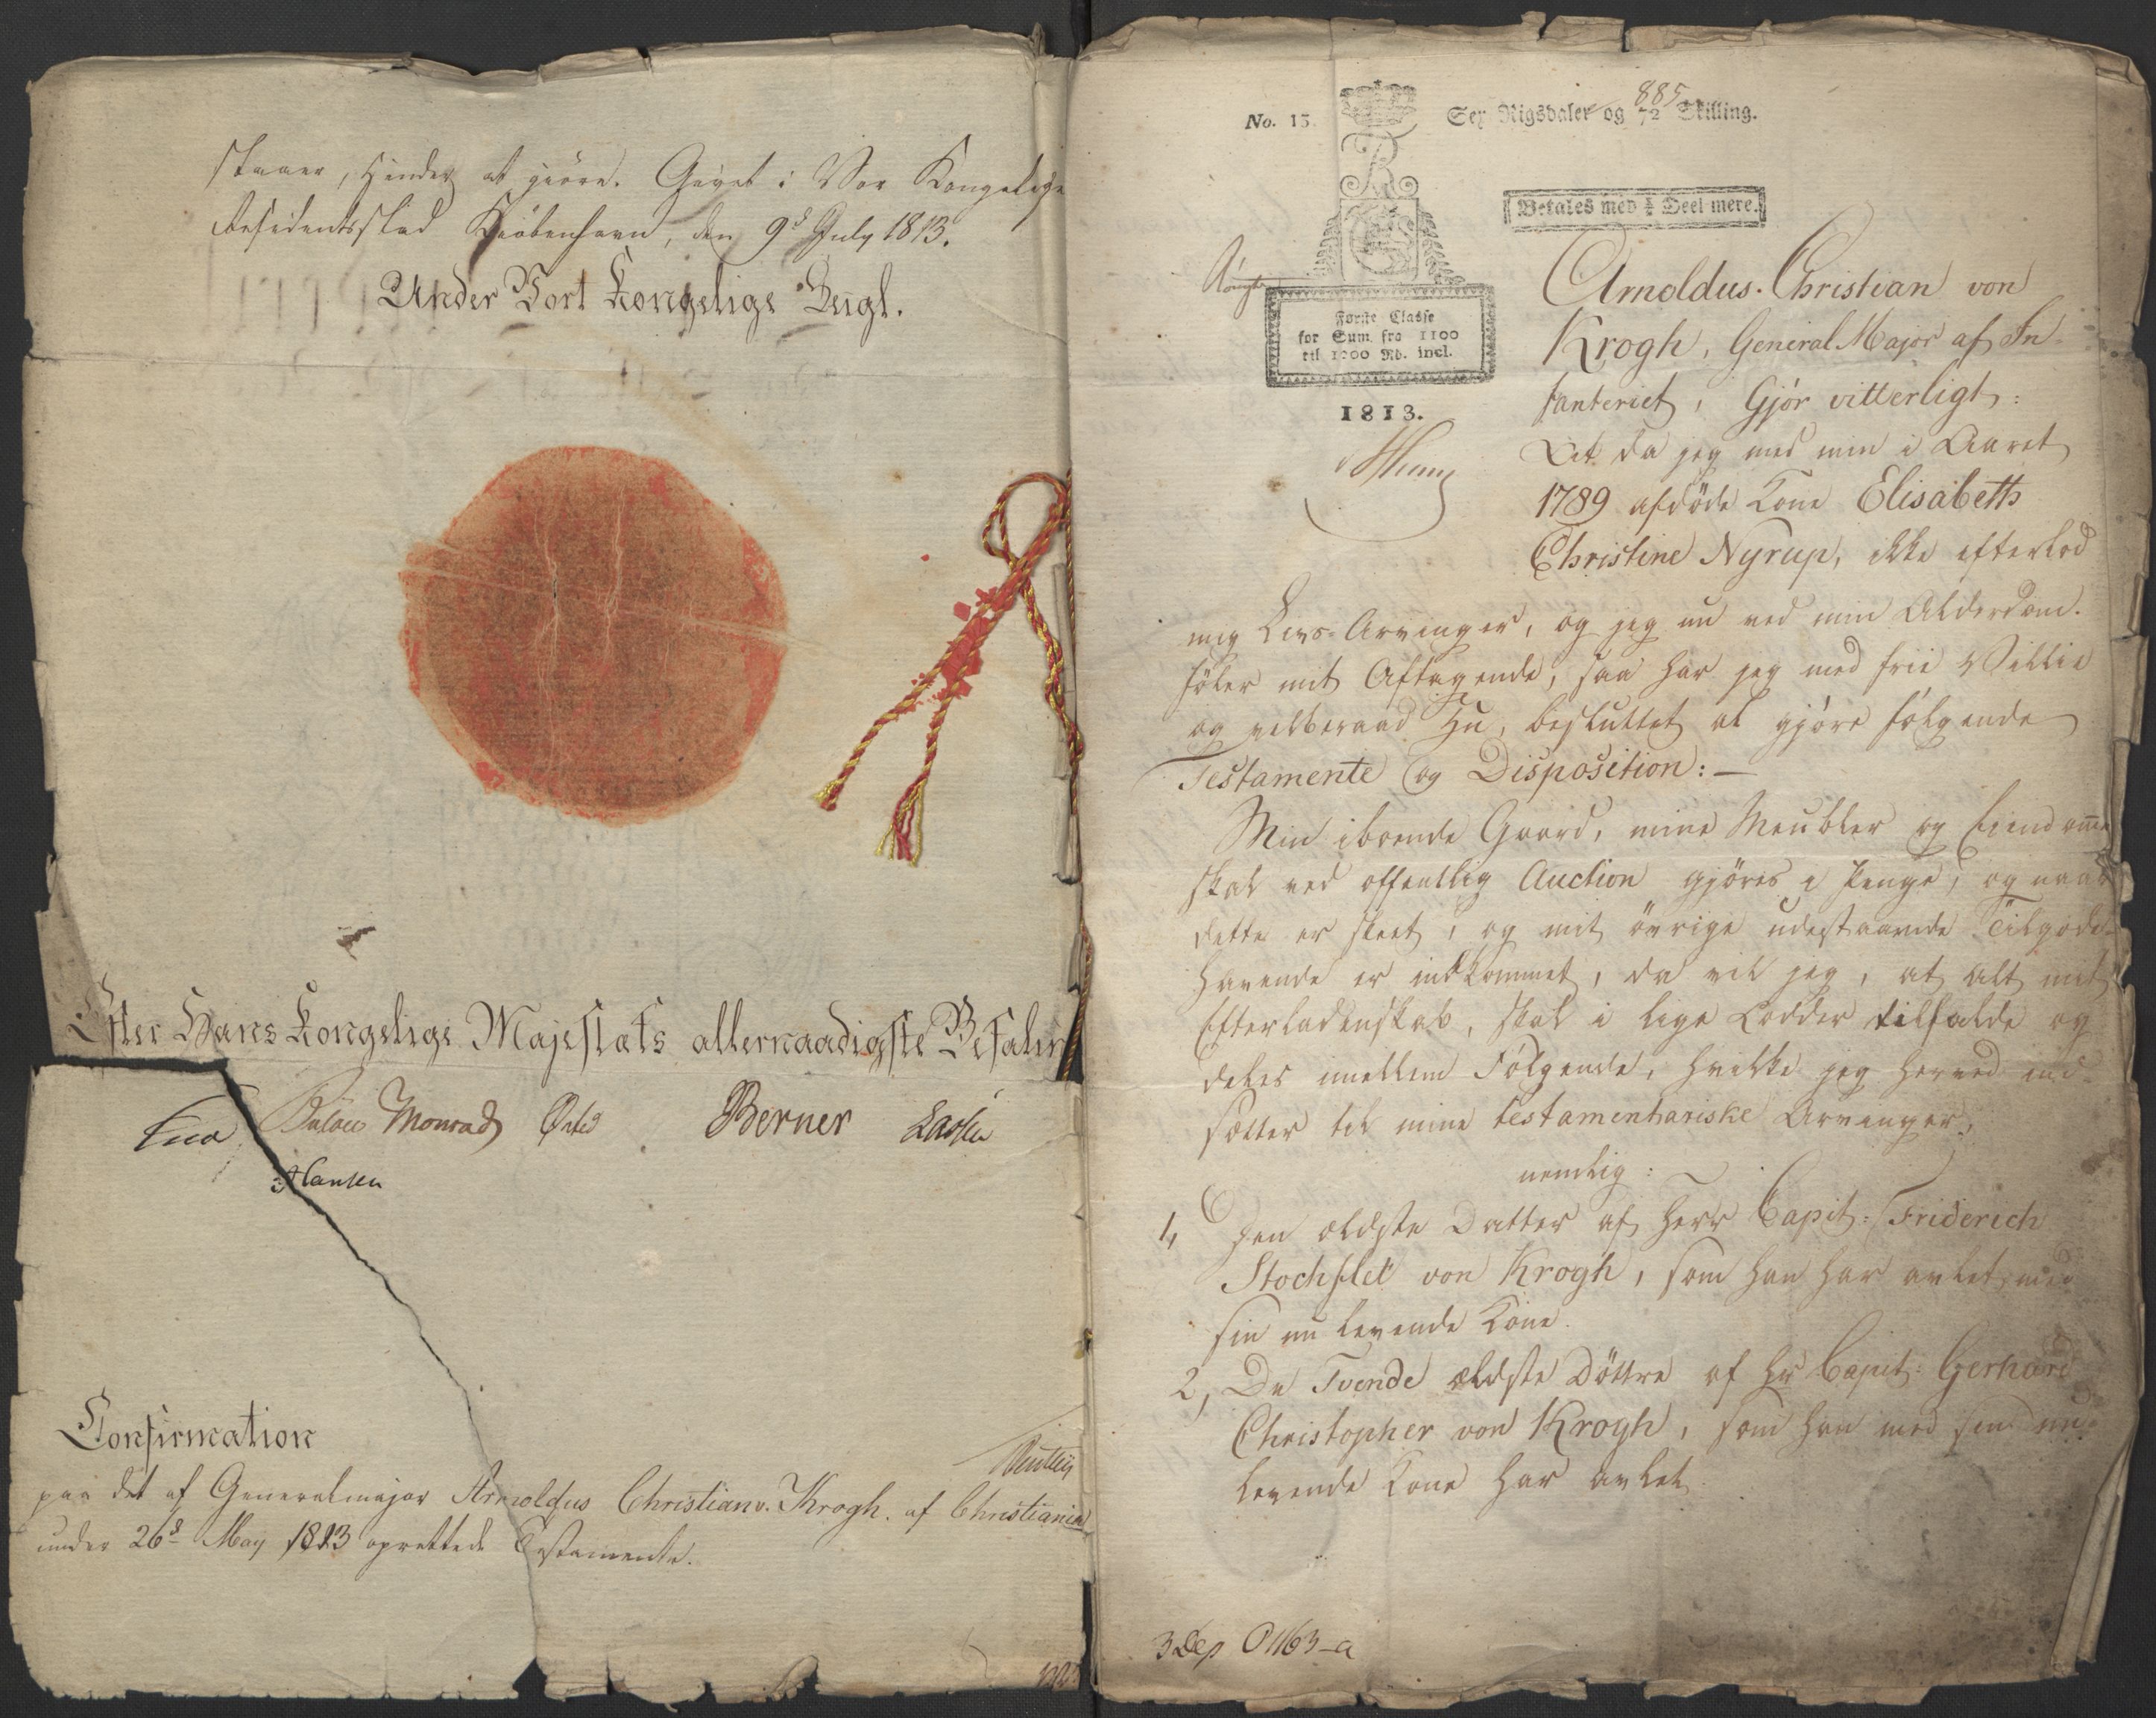 staaer, hinder at giöre. Givet i Vor Kongelige
Residentsstad Kiöbenhavn, den 9d July 1813.
Under Vort Kongelige Seigl.
Efter Hans Kongelige Majestæts allernaadigste Befaling
Bülow Monrad Ørsted Berner Lassen
Hansen
Confirmation
paa det af Generalmajor Arnoldus Christian v. Krogh. af Christiania
under 26d May 1813 oprettede Testamente.
No. 15. Sex Rigsdaler og 72 Skilling.
885
Betales med ¼ Deel mere.
Første Classe
for Sum. fra 1100
til 1200 Rd. incl.
1813.
Arnoldus Christian von
Krogh, General Major af In-
fanteriet, Gjör vitterligt:
At da jeg med min i Aaret
1789 afdöde Kone Elisabeth
Christine Nyrup, ikke efterlod
mig Livs-Arvinger, og jeg nu ved min Alderdom
föler mit Aftagende, saa har jeg med frie Villie
og velberaad Hu, besluttet at gjöre fölgende
Testamente og Disposition: —
Min iboende Gaard, mine Meubler og Eiendomme
skal ved offentlig Auction gjöres i Penge, og naar
dette er skeet, og mit övrige udestaaende Tilgode-
havende er indkommet, da vil jeg, at alt mit
Efterladenskab, skal i lige Lodder tilfalde og
deles imellem Fölgende, hvilke jeg herved ind-
sætter til mine testamentariske Arvinger,
nemlig:
1, Den ældste Datter af Herr Capit: Friderich
Stochflet von Krogh, som han har avlet med
sin nu levende Kone.
2, De Tvende ældste Döttre af Hr Capit: Gerhard
Christopher von Krogh, som han med sin nu-
levende Kone har avlet.
3 Dep 0163-a